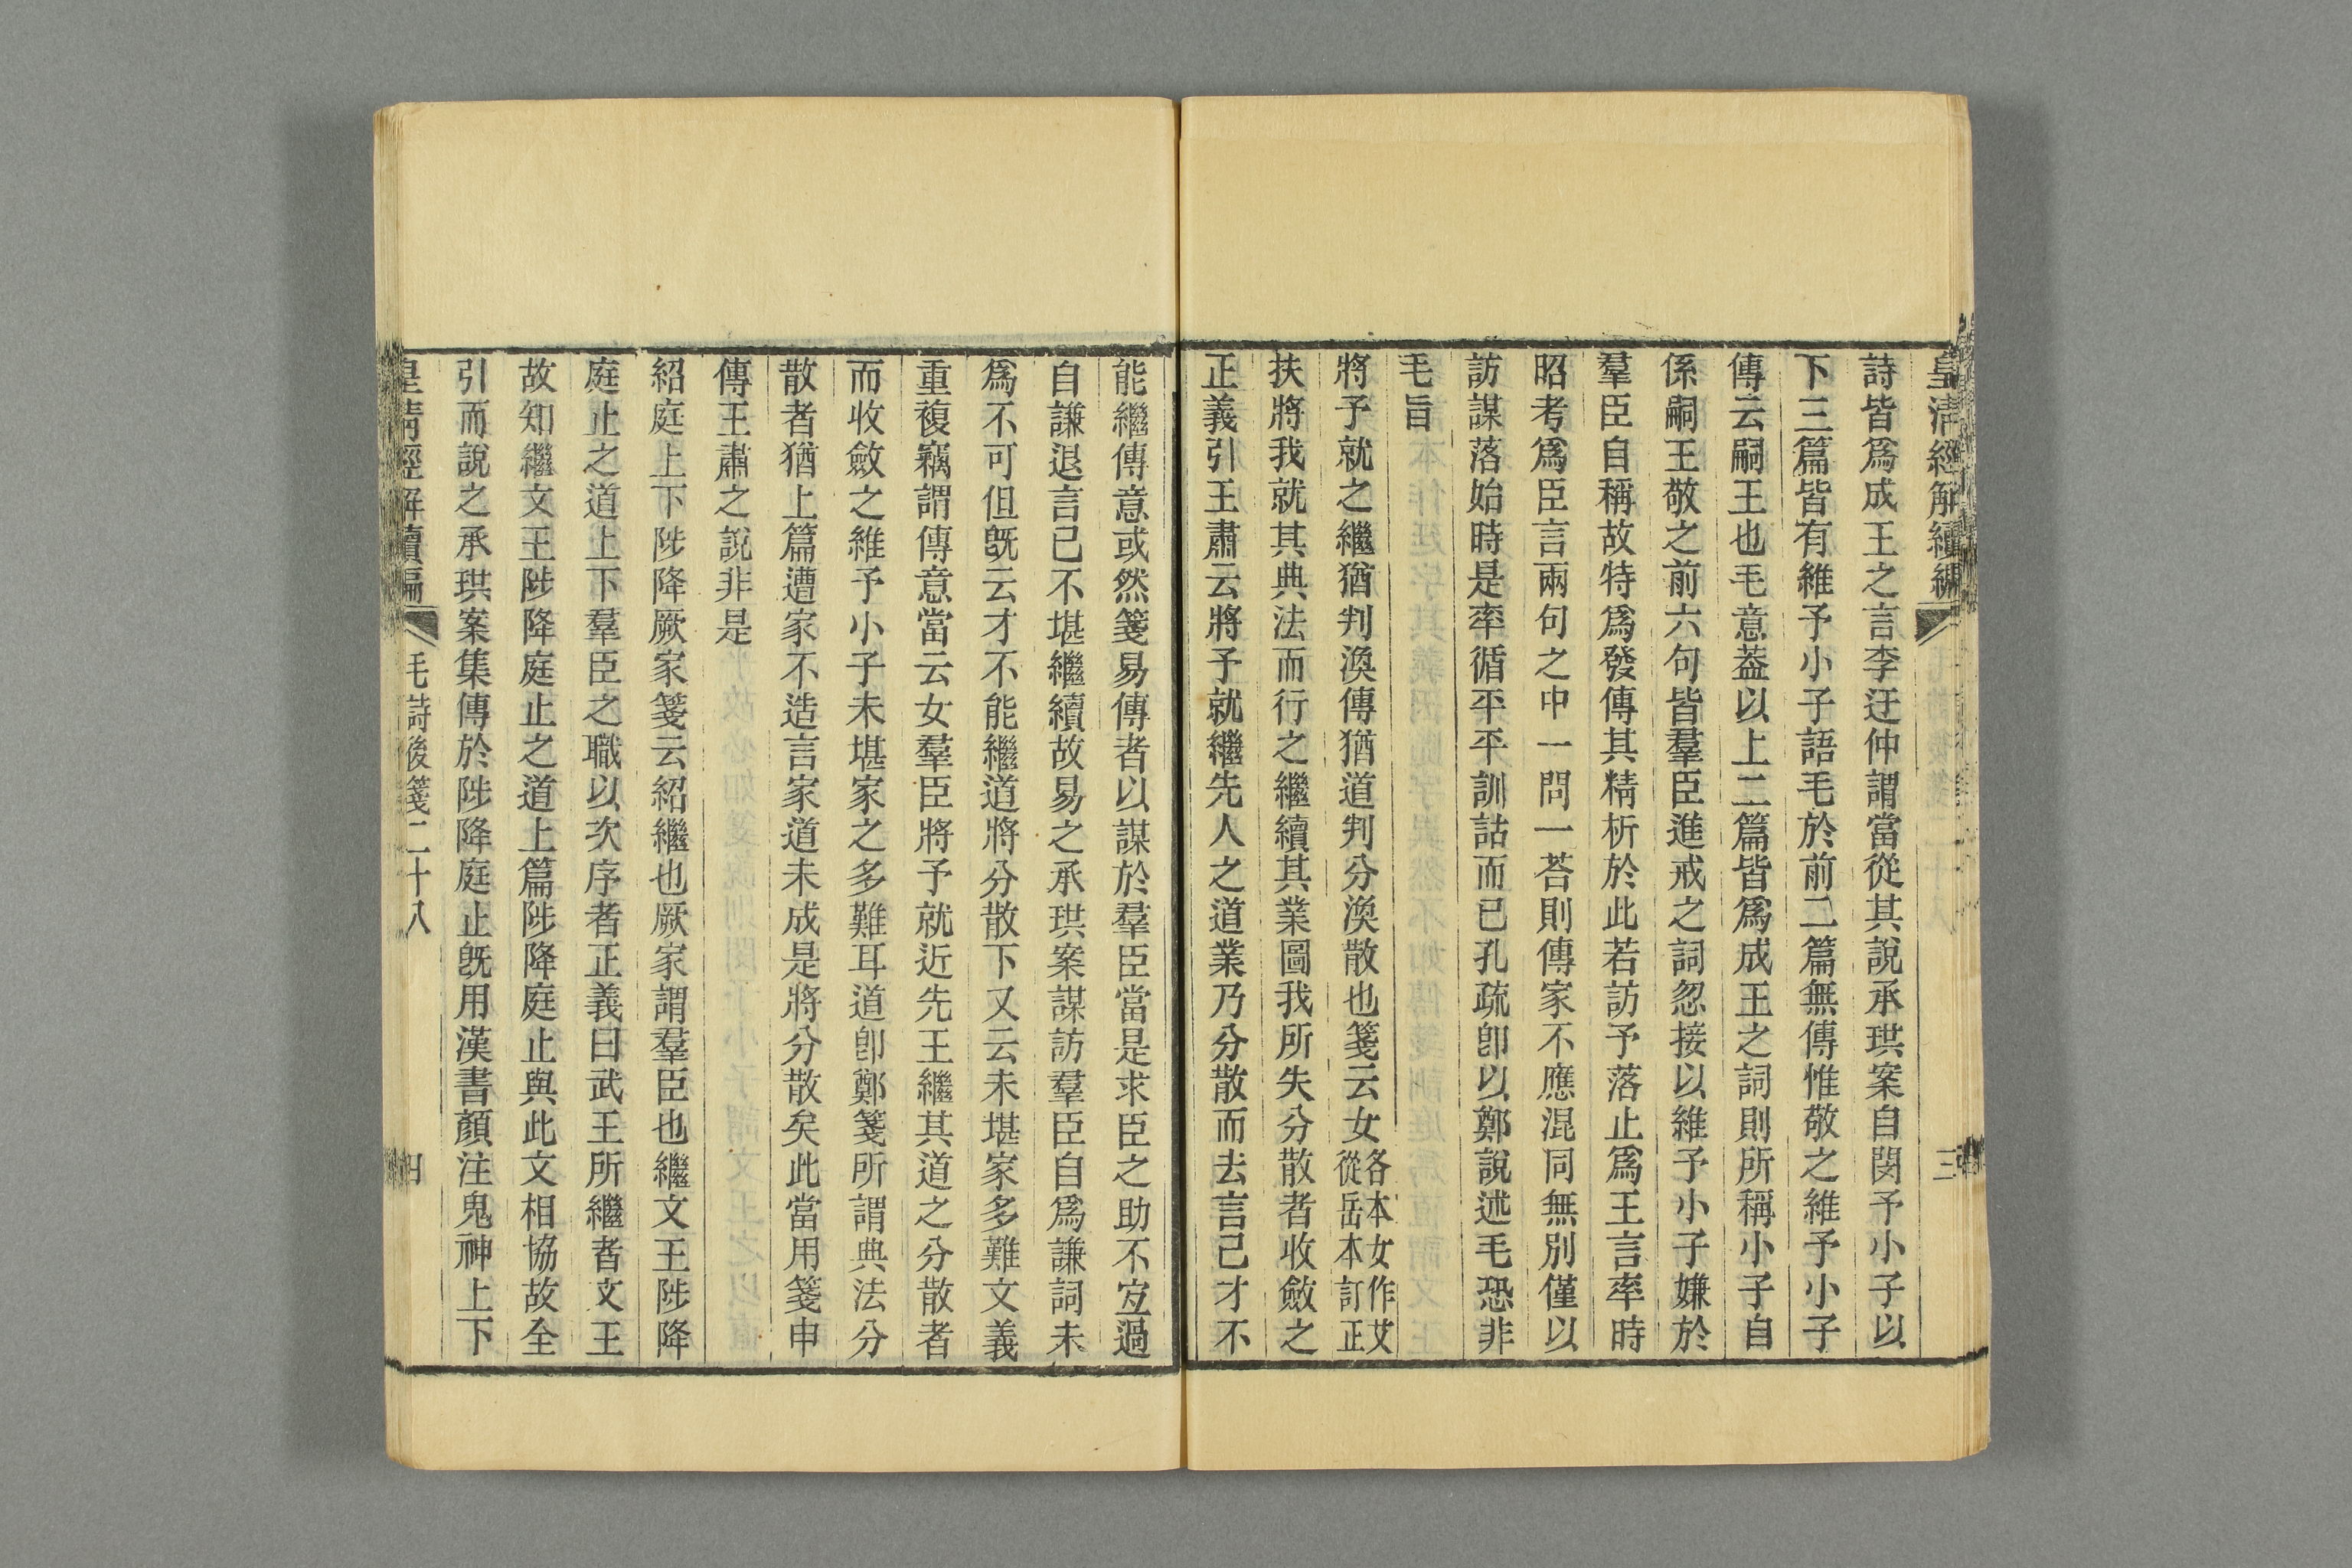 皇清經解續編 三
詩皆爲成王之言李迂仲謂當從其說承珙案自閔予小子以
下三篇皆有維予小子語毛於前二篇無傳惟敬之維予小子
傳云嗣王也毛意葢以上二篇皆爲成王之詞則所稱小子自
係嗣王敬之前六句皆羣臣進戒之詞忽接以維予小子嫌於
羣臣自稱故特爲發傳其精析於此若訪予落止爲王言率時
昭考爲臣言兩句之中一問一荅則傳家不應混同無別僅以
訪謀落始時是率循平平訓詁而已孔疏卽以鄭說述毛恐非
毛旨
將予就之繼猶判渙傳猶道判分渙散也箋云女各本女作艾從岳本訂正
扶將我就其典法而行之繼續其業圖我所失分散者收斂之
正義引王肅云將予就繼先人之道業乃分散而去言己才不
能繼傳意或然箋易傳者以謀於羣臣當是求臣之助不宐過
自謙退言己不堪繼續故易之承珙案謀訪羣臣自爲謙詞未
爲不可但旣云才不能繼道將分散下又云未堪家多難文義
重複竊謂傳意當云女羣臣將予就近先王繼其道之分散者
而收斂之維予小子未堪家之多難耳道卽鄭箋所謂典法分
散者猶上篇遭家不造言家道未成是將分散矣此當用箋申
傳王肅之說非是
紹庭上下陟降厥家箋云紹繼也厥家謂羣臣也繼文王陟降
庭止之道上下羣臣之職以次序者正義曰武王所繼者文王
故知繼文王陟降庭止之道上篇陟降庭止與此文相協故全
引而說之承珙案集傳於陟降庭止旣用漢書顏注鬼神上下
皇清經解續編 毛詩後箋二十八 四